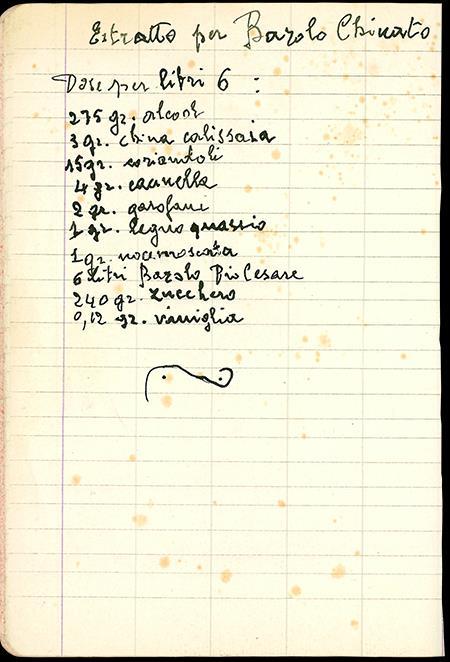 Estratto per Barolo Chinato
Dose per litri 6 :
275 gr. alcool
3 gr. china calissaia
15 gr. coriandoli
4 gr. cannella
2 gr. garofani
1 gr. legno quassio
1 gr. nocemoscata
6 litri Barolo Pio Cesare
240 gr. zucchero
0,12 gr. vaniglia